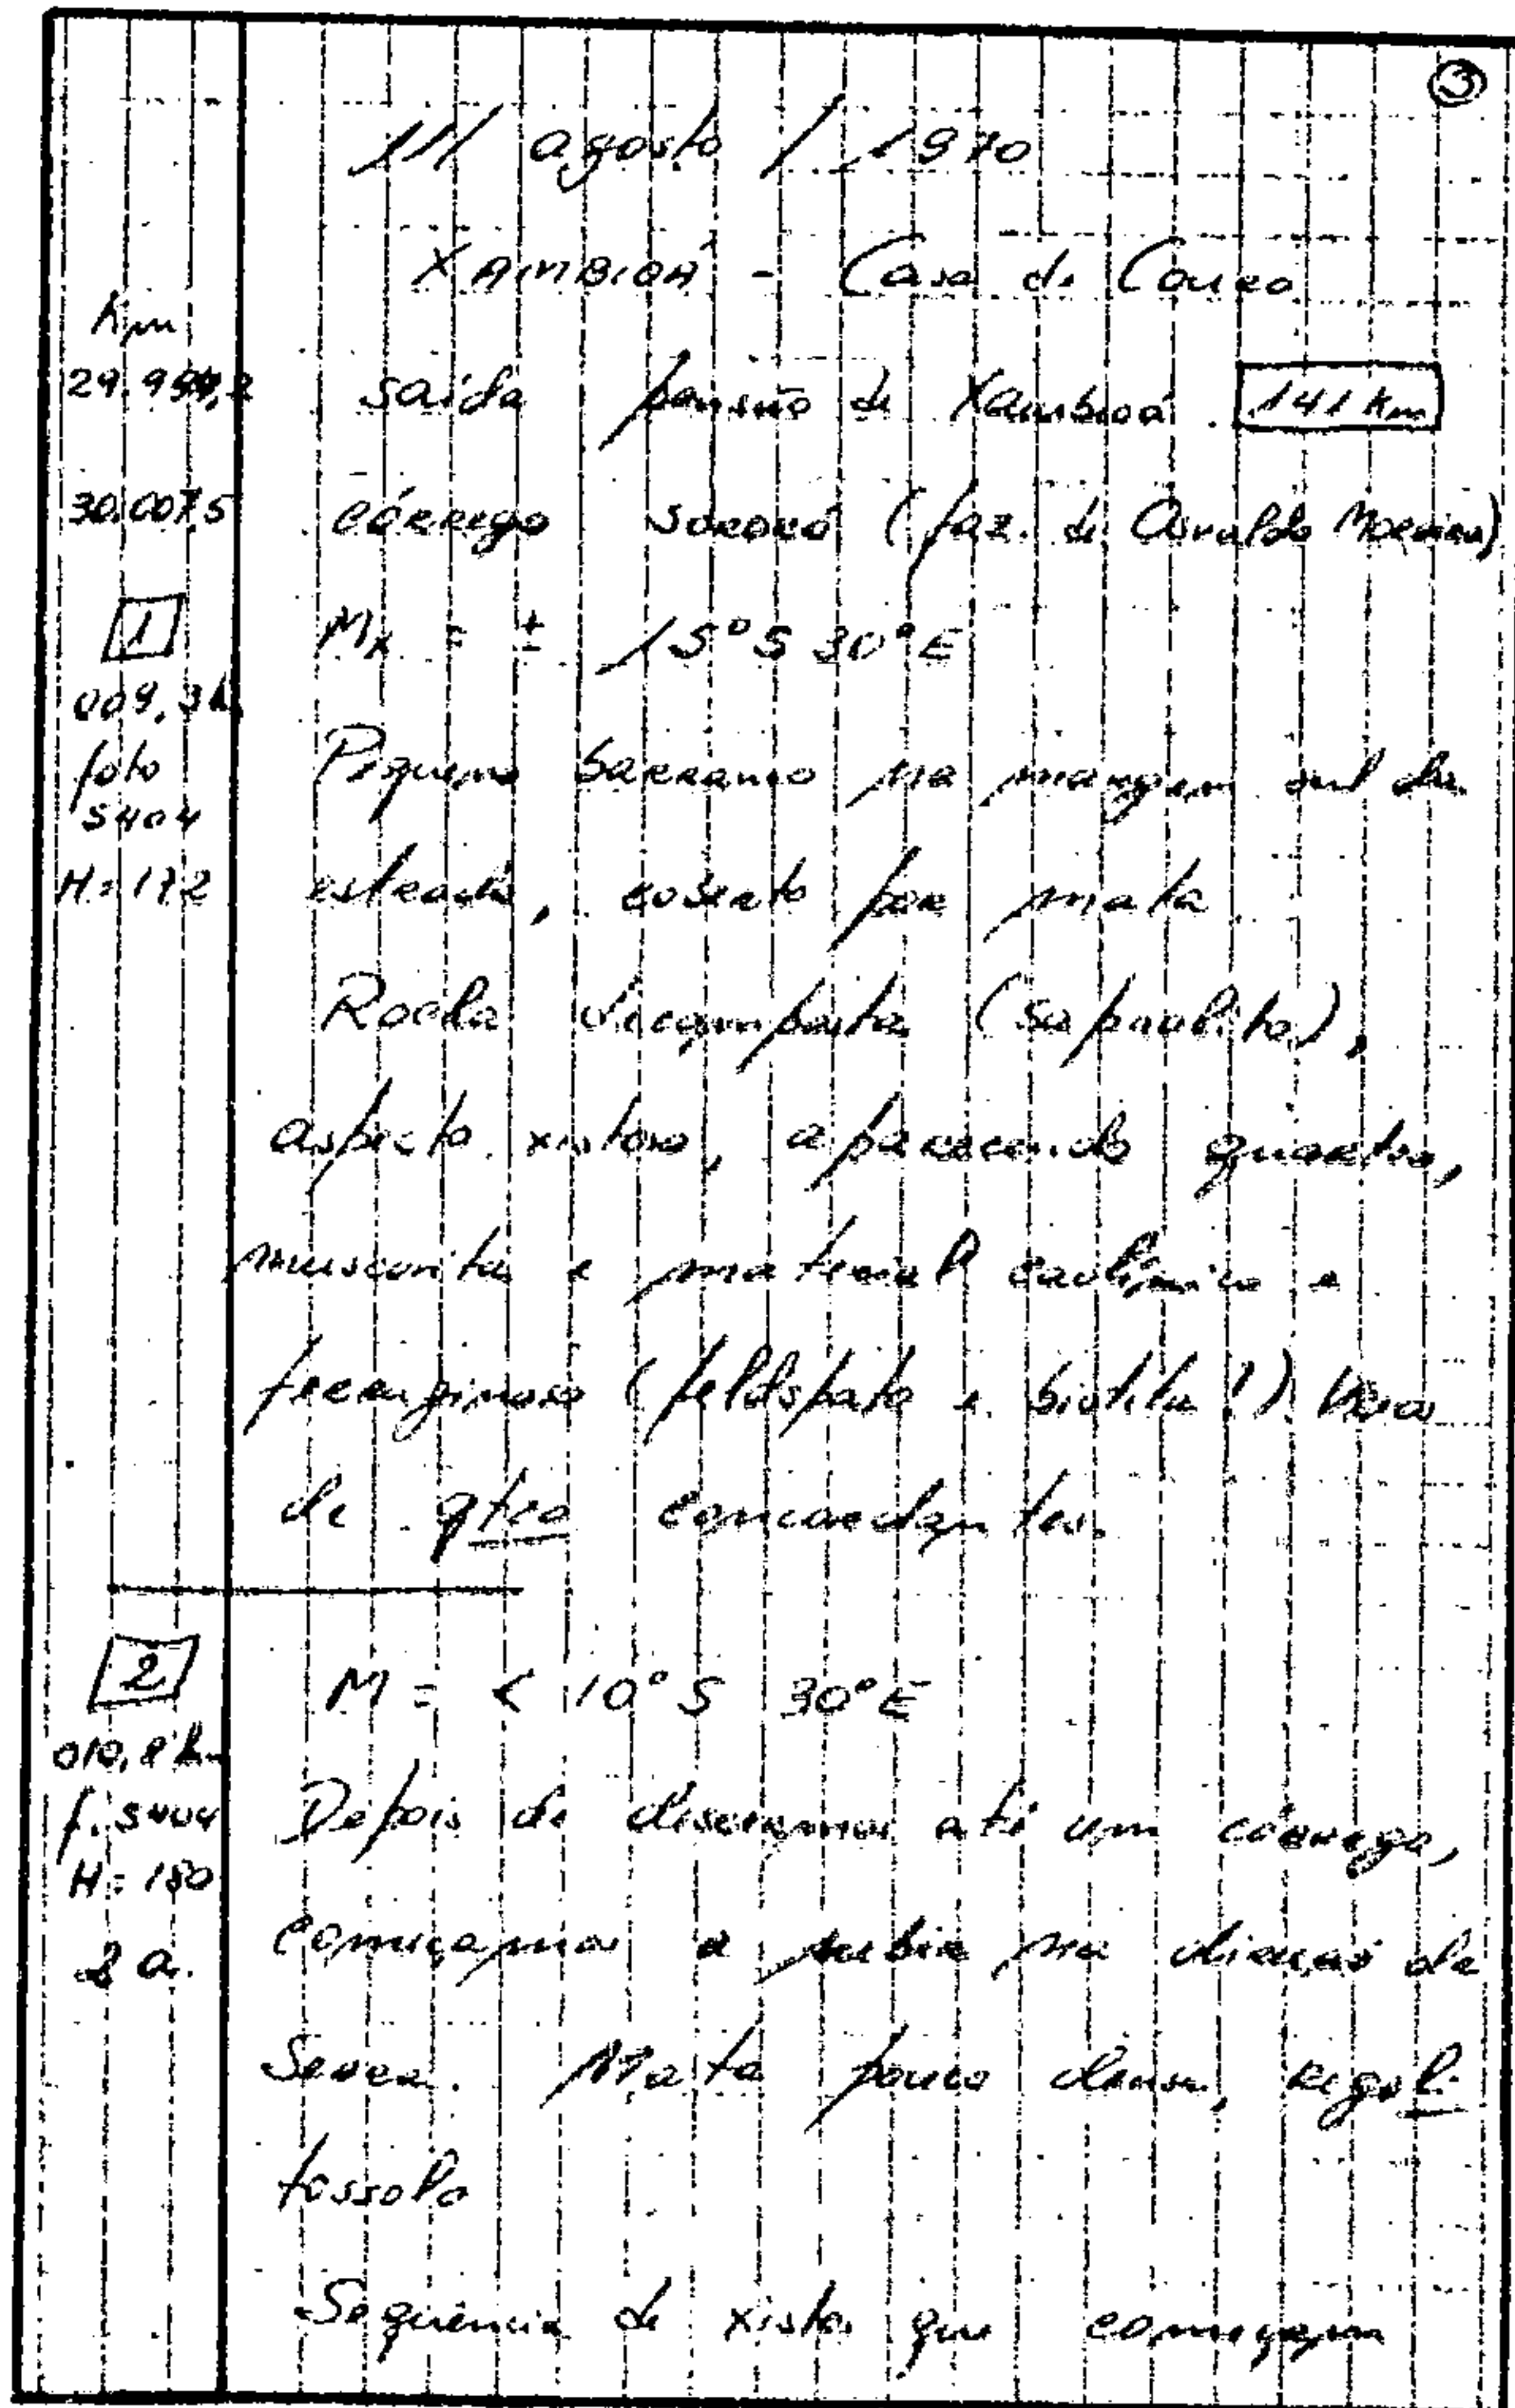 3
11/ agosto / 1970
XAMBIOÁ - Casa de Couro
Km
29.999,2 saída pensão de Xambioá. 141 Km
30.007,5 córrego Sororó (faz. de Osvaldo Moreira)
1 Mx = ± 15° S 30° E
009,3 k
foto Pequeno barranco na margem sul da
5404
H = 172 estrada, coberto por mata.
Rocha decomposta (saprolito),
aspecto xistoso, aparecendo quartzo,
muscovita e material caolínico e
ferruginoso (feldspato e biotita!). Veios
de qtzo concordantes.
2 M = < 10° S 30° E
010,8 km
f. 5404 Depois de descermos até um córrego,
H = 180
2 a. começamos a subir na direção da
Serra. Mata pouco densa, regoli
tossolo
Sequência de xistos que começam